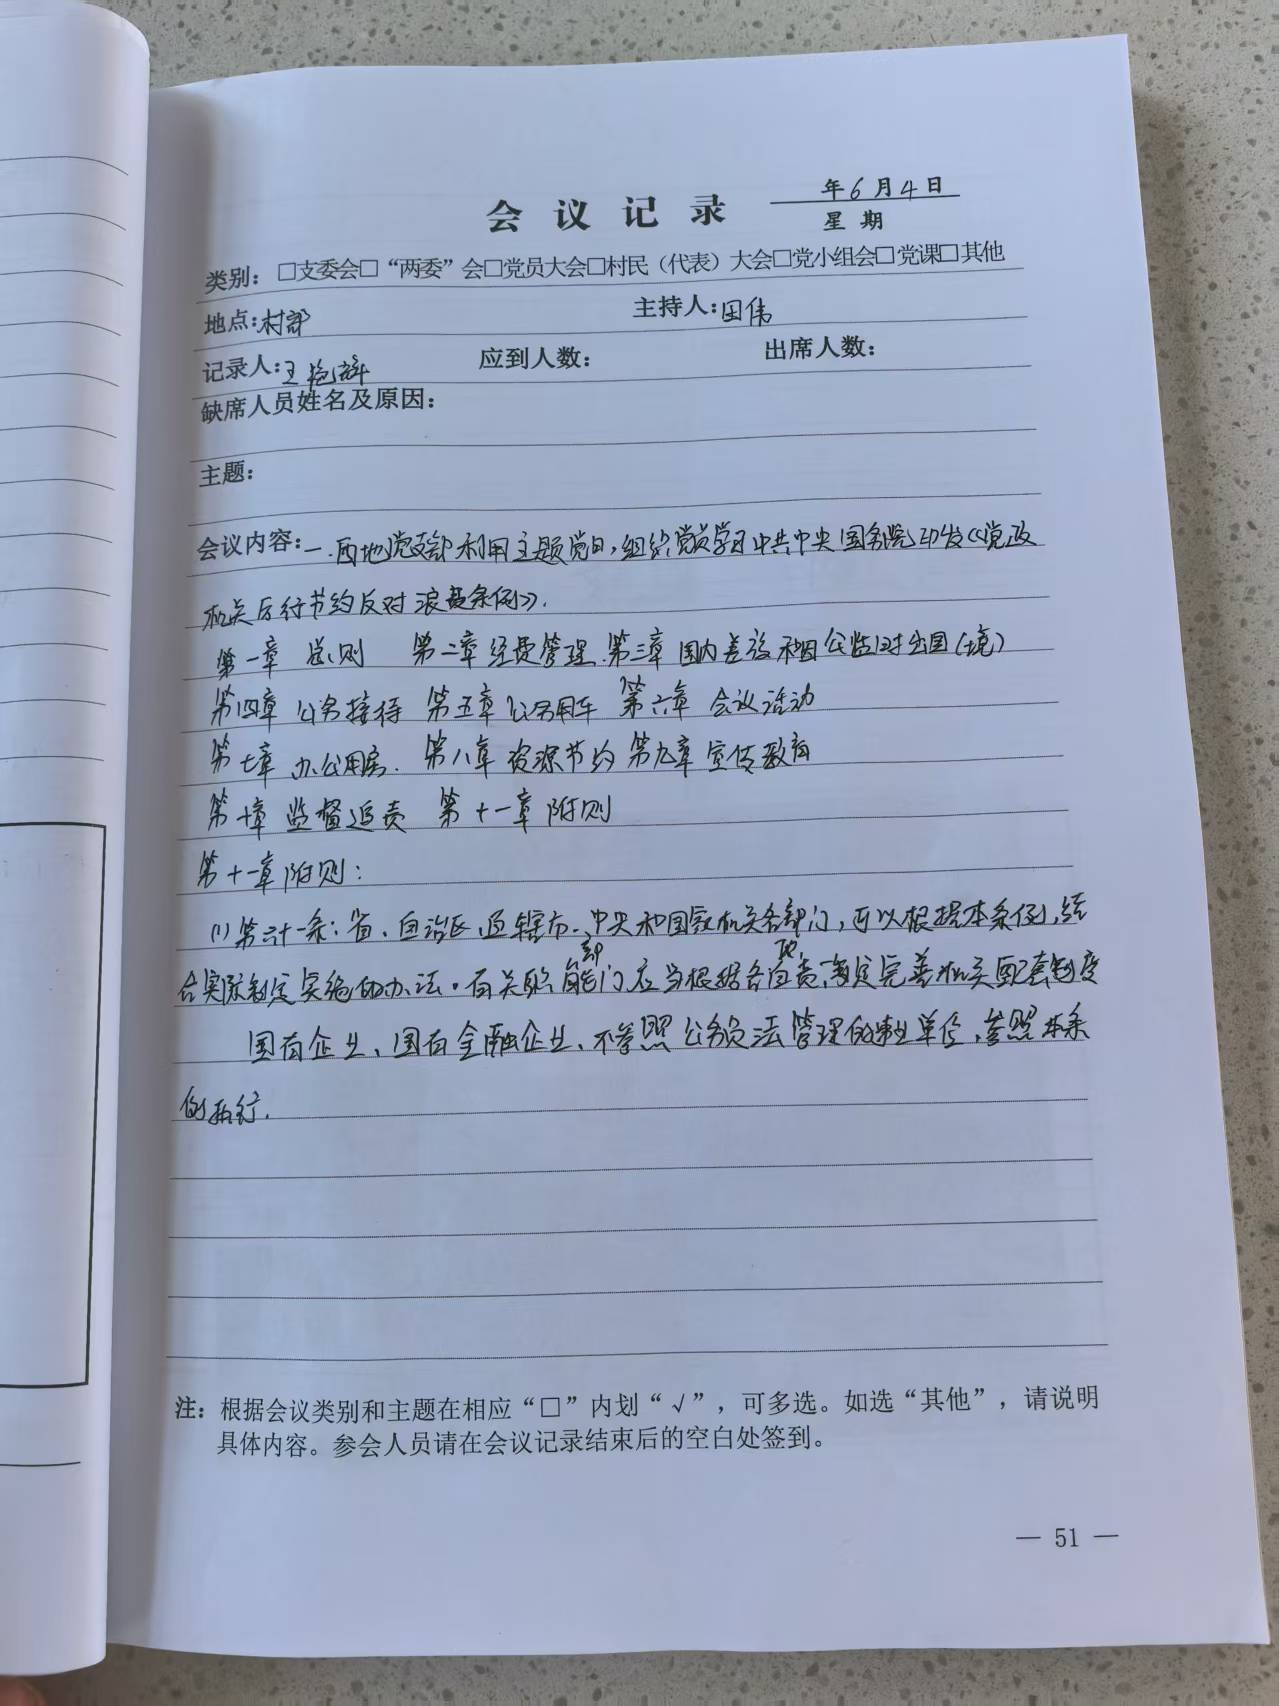 会议记录 年6月4日
星期
类别：□支委会□“两委”会□党员大会□村民（代表）大会□党小组会□党课□其他
地点：村部 主持人：田伟
记录人：王艳 应到人数： 出席人数：
缺席人员姓名及原因：
主题：
会议内容：一.西地党支部利用主题党日，组织党员学习中共中央国务院印发《党政
机关厉行节约反对浪费条例》.
第一章 总则 第二章 经费管理.第三章 国内差旅和因公临时出国(境)
第四章 公务接待 第五章 公务用车 第六章 会议活动
第七章 办公用房. 第八章 资源节约 第九章 宣传教育
第十章 监督追责 第十一章 附则
第十一章 附则：
(1)第六十一条：省、自治区、直辖市、中央和国家机关各部门，可以根据本条例，结
合实际制定实施的办法。有关职能部门应当根据各自职责，制定完善相关配套制度
国有企业、国有金融企业、不参照公务员法管理的事业单位，参照本条
例执行.
注：根据会议类别和主题在相应“□”内划“√”，可多选。如选“其他”，请说明
具体内容。参会人员请在会议记录结束后的空白处签到。
— 51 —